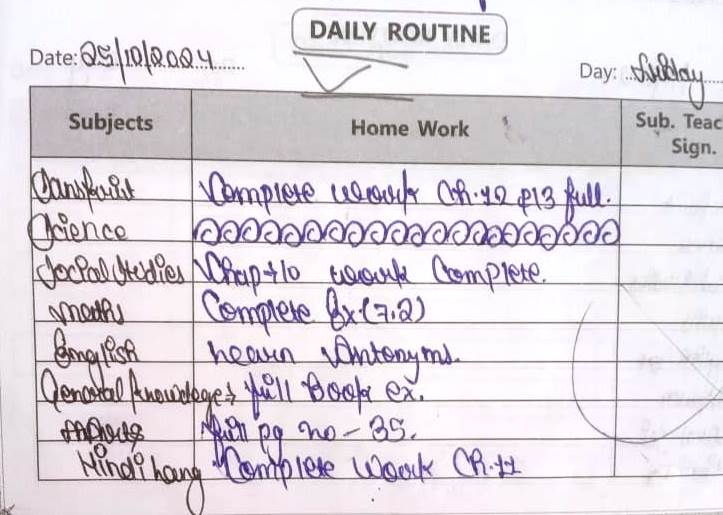 DAILY ROUTINE
Date: 25/10/2024
Day: Friday
Subjects Home Work Sub. Teac
Sign.
Sanskrit Complete work Ch.12 p13 full.
Science
Social Studies Chap+10 work Complete.
maths Complete Ex.(7.2)
English learn Antonyms.
General knowledge full Book ex.
full pg no - 35.
Hindi lang Complete work Ch.11